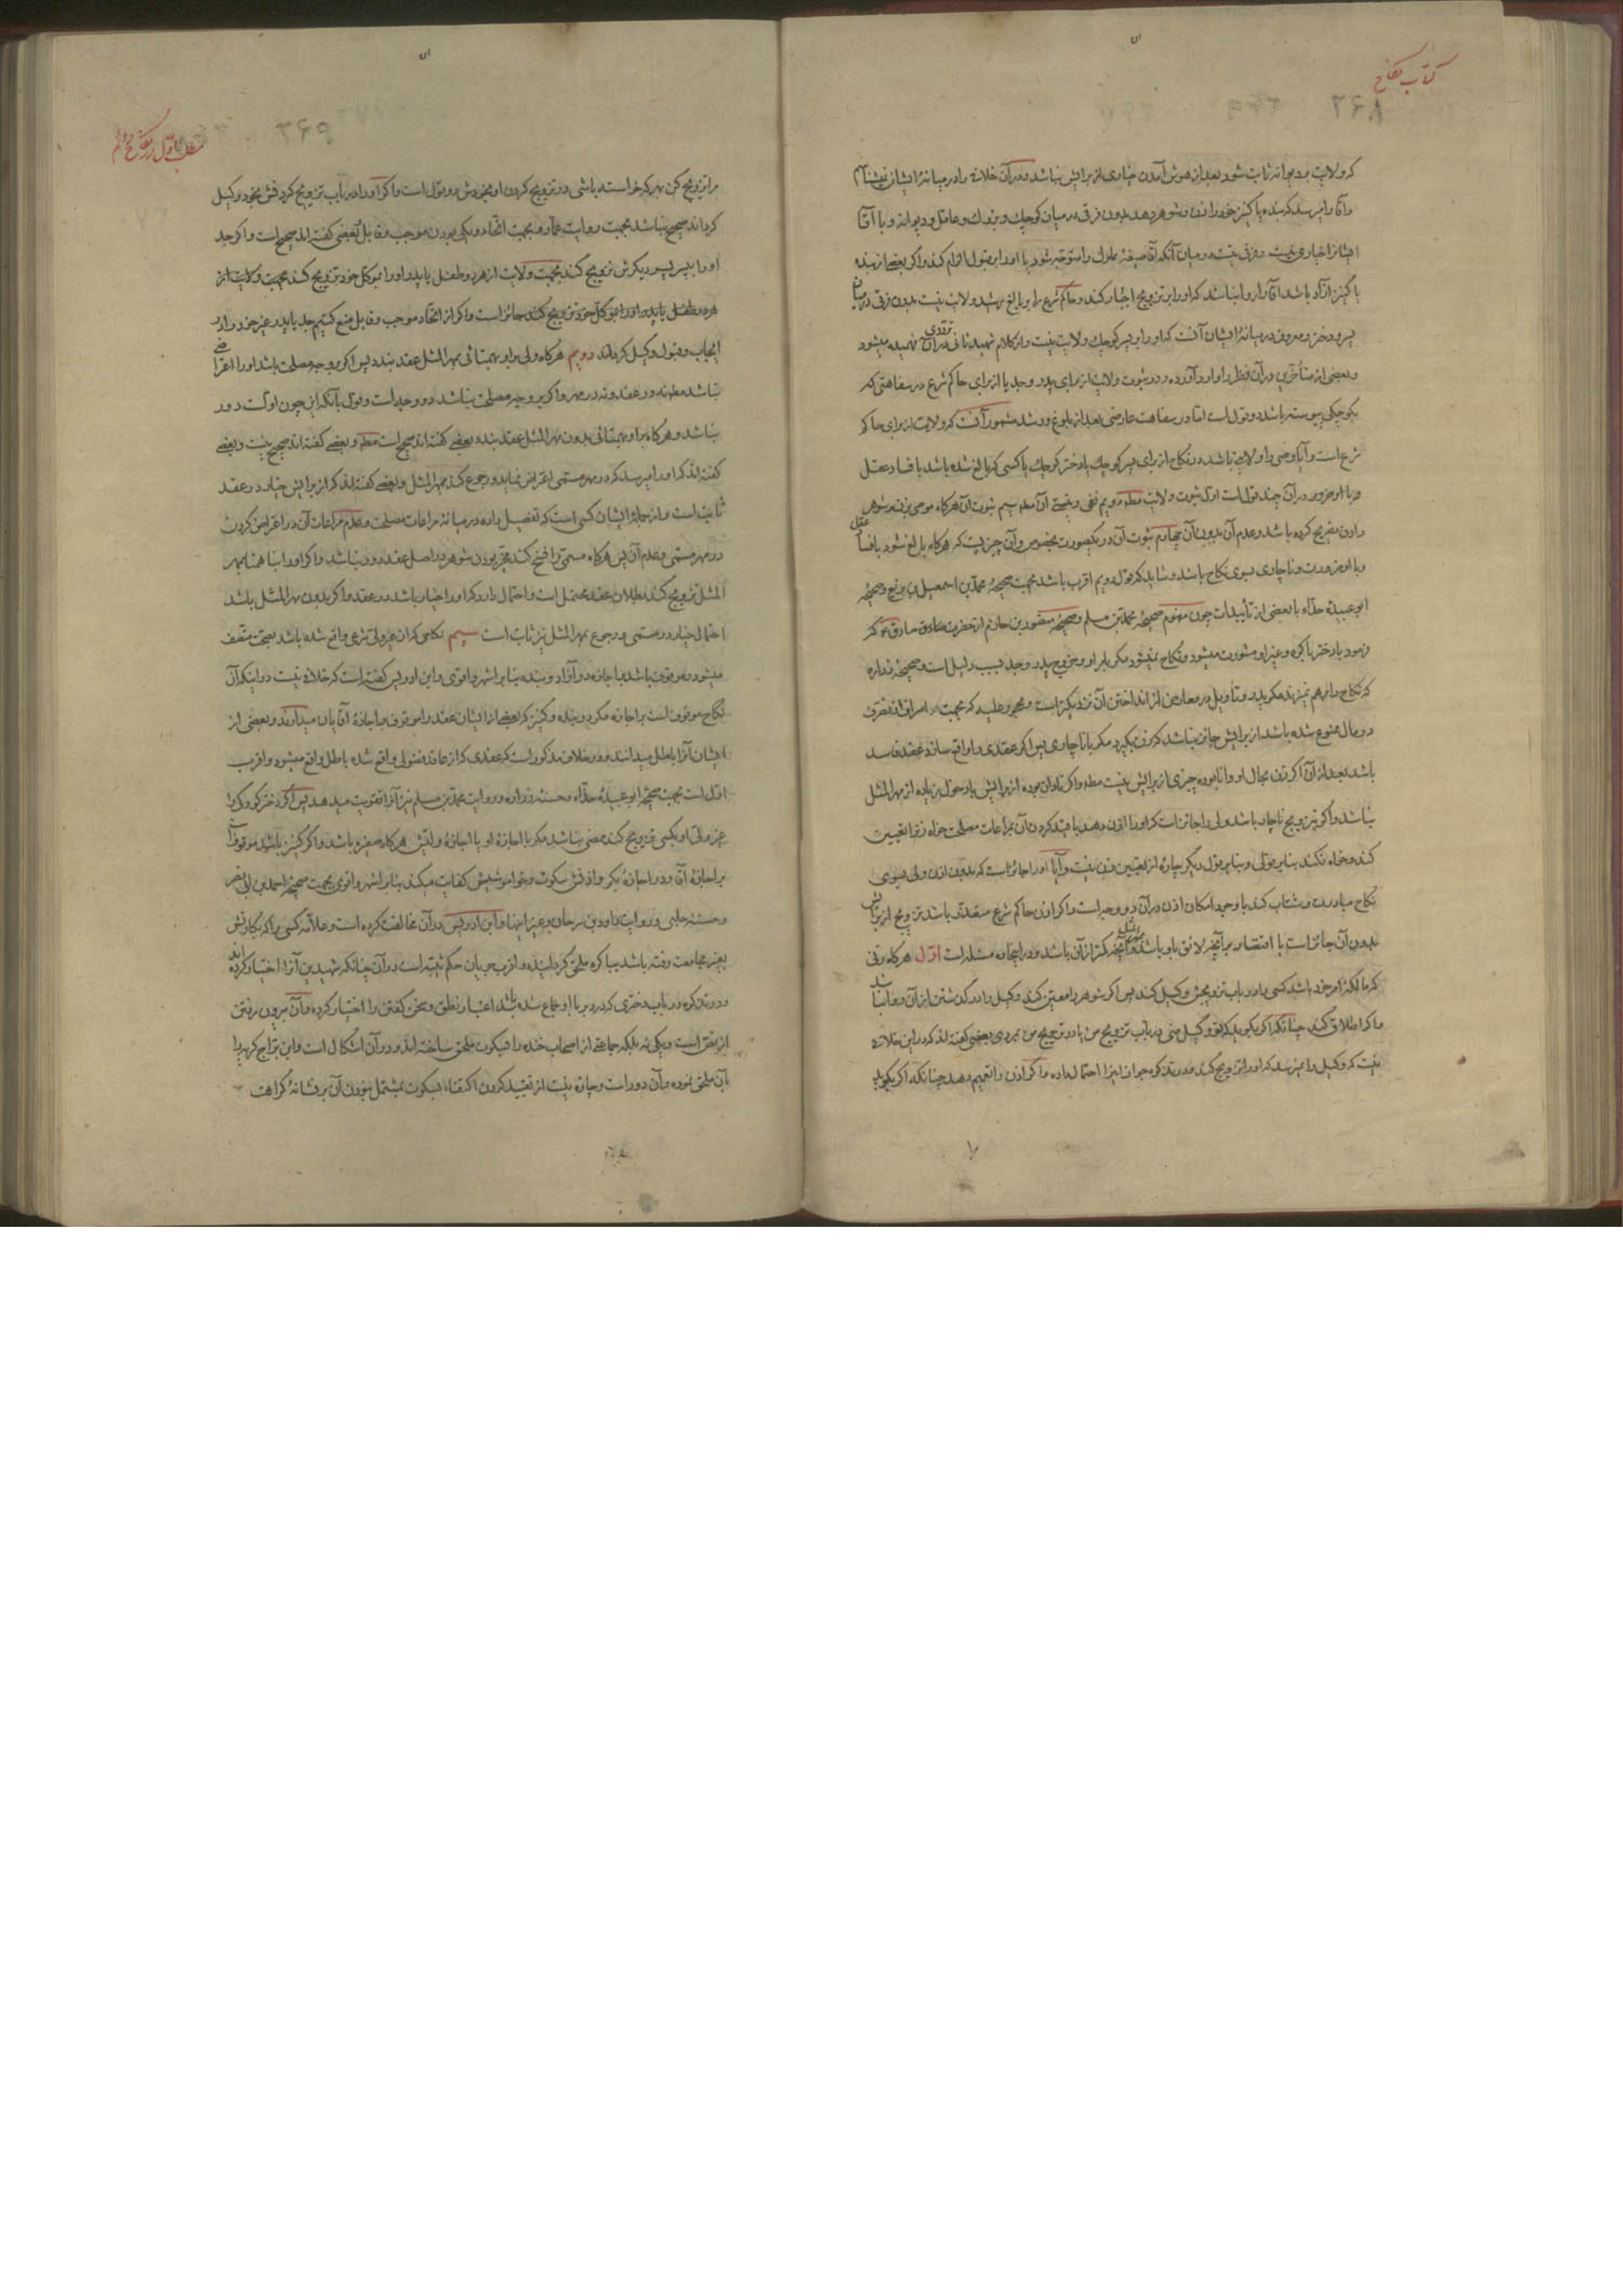 کتاب نکاح
که ولایت بر دیوانه ثابت شود بعد از هوش آمدن خیاری از برایش نباشد و در آن خلافی را در میانهٔ ایشان نمیشناسم
و آقا را میرسد که بنده یا کنیز خود را زن و شوهر دهد بدون فرقی در میان کوچك و بزرك و عاقل و دیوانه و با آقا
ایشان را خیاری نیست و فرقی نیست در میان آنکه آقا صیغهٔ مملوك را متوجه شود یا او را بر قبول الزام کند و اگر بعضی از بنده
یا کنیز آزاد باشد آقا را روا نباشد که او را بر تزویج اجبار کند و حاکم شرع را بر بالغ رشید ولایت نیست بدون فرقی در میان
پسر و دختر و معروف در میانهٔ ایشان آنست که او را بر پسر کوچك ولایت نیست و از کلام شهید ثانی در آن ترددی فهمیده میشود
و بعضی از متأخرین در آن نظر را وارد آورده و در ثبوت ولایت از برای پدر و جد یا از برای حاکم شرع در سفاهتی که
بکوچکی پیوسته باشد دو قول است اما در سفاهت عارضی بعد از بلوغ و رشد مشهور آنست که ولایت از برای حاکم
شرع است و آیا وصی را ولایتی باشد در نکاح از برای پسر کوچك یا دختر کوچك یا کسی که بالغ شده باشد با فساد عقل
و با او ضرور در آن چند قول است اول ثبوت ولایت مطلقا دویم نفی و نیستی آن مطلقا سیم ثبوت آن هرگاه موصی بزن و شوهر
دادن تصریح کرده باشد و عدم آن بدون آن چهارم ثبوت آن در یکصورت بخصوص و آن چیزیست که هرگاه بالغ شود با فساد عقل
و با او ضرورت و ناچاری بسوی نکاح باشد و شاید که قول دویم اقرب باشد بجهت صحیحهٔ محمد بن اسمعیل بن بزیع و صحیحهٔ
ابو عبیدهٔ حذّاء با بعضی از تأییدات چون مفهوم صحیحهٔ محمد بن مسلم و صحیحهٔ منصور بن حازم از حضرت صادق که
فرمود با دختر باکره و غیر او مشورت میشود و نکاح نمیشود مگر بامر او و خروج پدر و جد بسبب دلیل است و صحیحهٔ زراره
که نکاح را بر هم نمیزند مگر پدر و تاویل در معارض از انداختن آن نزدیکتر است و محجور علیه که بجهت اسراف از تصرف
در مال ممنوع شده باشد از برایش جایز نباشد که زن بگیرد مگر با ناچاری پس اگر عقدی را واقع سازد عقد فاسد
باشد بعد از آن اگر زن بحال او دانا بوده چیزی از برایش نیست مطلقا و اگر نادان بوده از برایش با دخول بزیاده از مهر المثل
نباشد و اگر بتزویج ناچار باشد ولی را جایز است که او را اذن دهد یا مقید کردن آن بمراعات مصلحت خواه زن را تعیین
کند و خواه نکند بنابر قولی و بنابر قول دیگر چاره از تعیین زن نیست و آیا او را جایز است که بدون اذن ولی بسوی
نکاح مبادرت و شتاب کند با وجود امکان اذن در آن دو وجه است و اگر اذن حاکم شرع متعذر باشد تزویج از برایش
بدون آن جایز است با اقتصار بر آنچه لایق باو باشد بمهر المثل و آنچه کمتر از آن باشد و در اینجا ده مسئله است اول هرگاه زنی
که مالکهٔ امر خود باشد کسی را در باب تزویجش وکیل کند پس اگر شوهر را معین کند وکیل را در گذشتن از آن روا نباشد
و اگر اطلاق کند چنانکه اگر بگوید که تو وکیل منی در باب تزویج من یا در تزویج من بمردی بعضی گفته اند که در این خلافی
نیست که وکیل را نمیرسد که او را تزویج کند و در تذکره جواز اینرا احتمال داده و اگر اذن را تعمیم دهد چنانکه اگر بگوید
۳۶۵
مطلب اول در نکاح دائم
مرا تزویج کن بهر که خواسته باشی در تزویج کردن او بخودش دو قول است و اگر او را در باب تزویج کردنش بخود وکیل
گرداند صحیح نباشد بجهت روایت عمار و بجهت اتحاد و یکی بودن موجب و قابل و بعضی گفته اند صحیح است و اگر جد
او را به پسر پسر دیگرش تزویج کند بجهت ولایت از هر دو طفل یا پدر او را بموکل خود تزویج کند بجهت ولایت از
هر دو طفل یا پدر او را بموکل خود تزویج کند جائز است و اگر از اتحاد موجب و قابل منع کنیم جد یا پدر غیر خود را در
ایجاب و قبول وکیل گرداند دویم هرگاه ولی برای او بهمتائی بمهر المثل عقد بندد پس اگر بر وجه مصلحت باشد او را اعتراضی
نباشد مطلقا نه در عقد و نه در مهر و اگر بر وجه مصلحت نباشد دو وجه است و قول بآنکه این چون اولست دور
نباشد و هرگاه برای او بهمتائی بدون مهر المثل عقد بندد بعضی گفته اند صحیح است مطلقا و بعضی گفته اند صحیح نیست و بعضی
گفته اند که او را میرسد که در مهر مسمی اعتراض نماید و رجوع کند بمهر المثل و بعضی گفته اند که از برایش خیار در عقد
ثابت است و از جملهٔ ایشان کسی است که تفصیل داده در میانهٔ مراعات مصلحت و عدم مراعات آن در اعتراض کردن
در مهر مسمی و عدم آن پس هرگاه مسمی را فسخ کند مخیر بودن شوهر در اصل عقد دور نباشد و اگر او را بنا همتا بمهر
المثل تزویج کند بطلان عقد محتمل است و احتمال دارد که او را خیار باشد در عقد و اگر بدون مهر المثل باشد
احتمال خیار در مسمی و رجوع بمهر المثل نیز ثابت است سیم نکاحی که از غیر ولی شرعی واقع شده باشد بصحت متصف
میشود و موقوف باشد با جازه در آزاد و بنده بنابر اشهر و اقوی و ابن ادریس گفته است که خلافی نیست در اینکه آن
نکاح موقوف است بر اجازه مگر در بنده و کنیز که بعضی از ایشان عقد را موقوف باجازهٔ آقایان میدارند و بعضی از
ایشان آنرا باطل میدانند و در خلاف مذکور است که عقدی که از عاقد فضولی واقع شده باطل واقع میشود و اقرب
اول است بجهت صحیحهٔ ابو عبیدهٔ حذّاء و حسنهٔ زراره و روایت محمد بن مسلم نیز آنرا تقویت میدهد پس اگر دختر بکر را
غیر ولی او بکسی تزویج کند ممضی نباشد مگر با اجازهٔ او یا اجازهٔ ولیش هرگاه صغیره باشد و اگر کنیز باشد موقوف است
بر اجازهٔ آقا و در اجازهٔ بکر و اذنش سکوت و خواموشیش کفایت میکند بنابر اشهر و اقوی بجهت صحیحهٔ احمد بن ابی نصر
و حسنهٔ حلبی و روایت داود بن سرحان و غیر اینها و ابن ادریس در آن مخالفت کرده است و علامه کسی را که بکارتش
بغیر مجامعت رفته باشد بباکره ملحق گردانیده و اقرب جریان حکم ثیبه است در آن چنانکه شهیدین آنرا اختیار کرده اند
و در تذکره در باب دختری که در دبر با او جماع شده باشد اعتبار نطق و سخن گفتن را اختیار کرده و آن بیرون رفتن
از نص است و یکی نه بلکه جماعتی از اصحاب خنده را بسکوت ملحق ساخته اند و در آن اشکال است و ابن براج گریه را
بآن ملحق نموده و آن دور است و چاره نیست از تقیید کردن اکتفاء بسکوت بمشتمل نبودن آن بر نشانهٔ کراهت